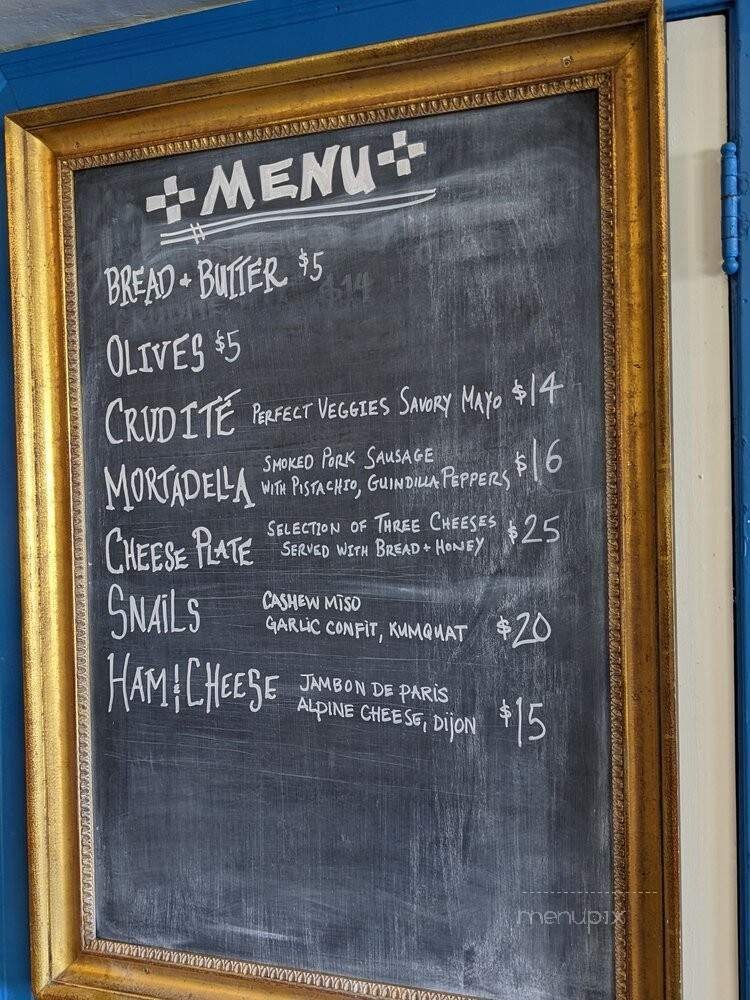 MENU
BREAD + BUTTER $5
OLIVES $5
CRUDITÉ PERFECT VEGGIES SAVORY MAYO $14
MORTADELLA SMOKED PORK SAUSAGE
WITH PISTACHIO, GUINDILLA PEPPERS $16
CHEESE PLATE SELECTION OF THREE CHEESES
SERVED WITH BREAD + HONEY $25
SNAILS CASHEW MISO
GARLIC CONFIT, KUMQUAT $20
HAM & CHEESE JAMBON DE PARIS
ALPINE CHEESE, DIJON $15
menupix